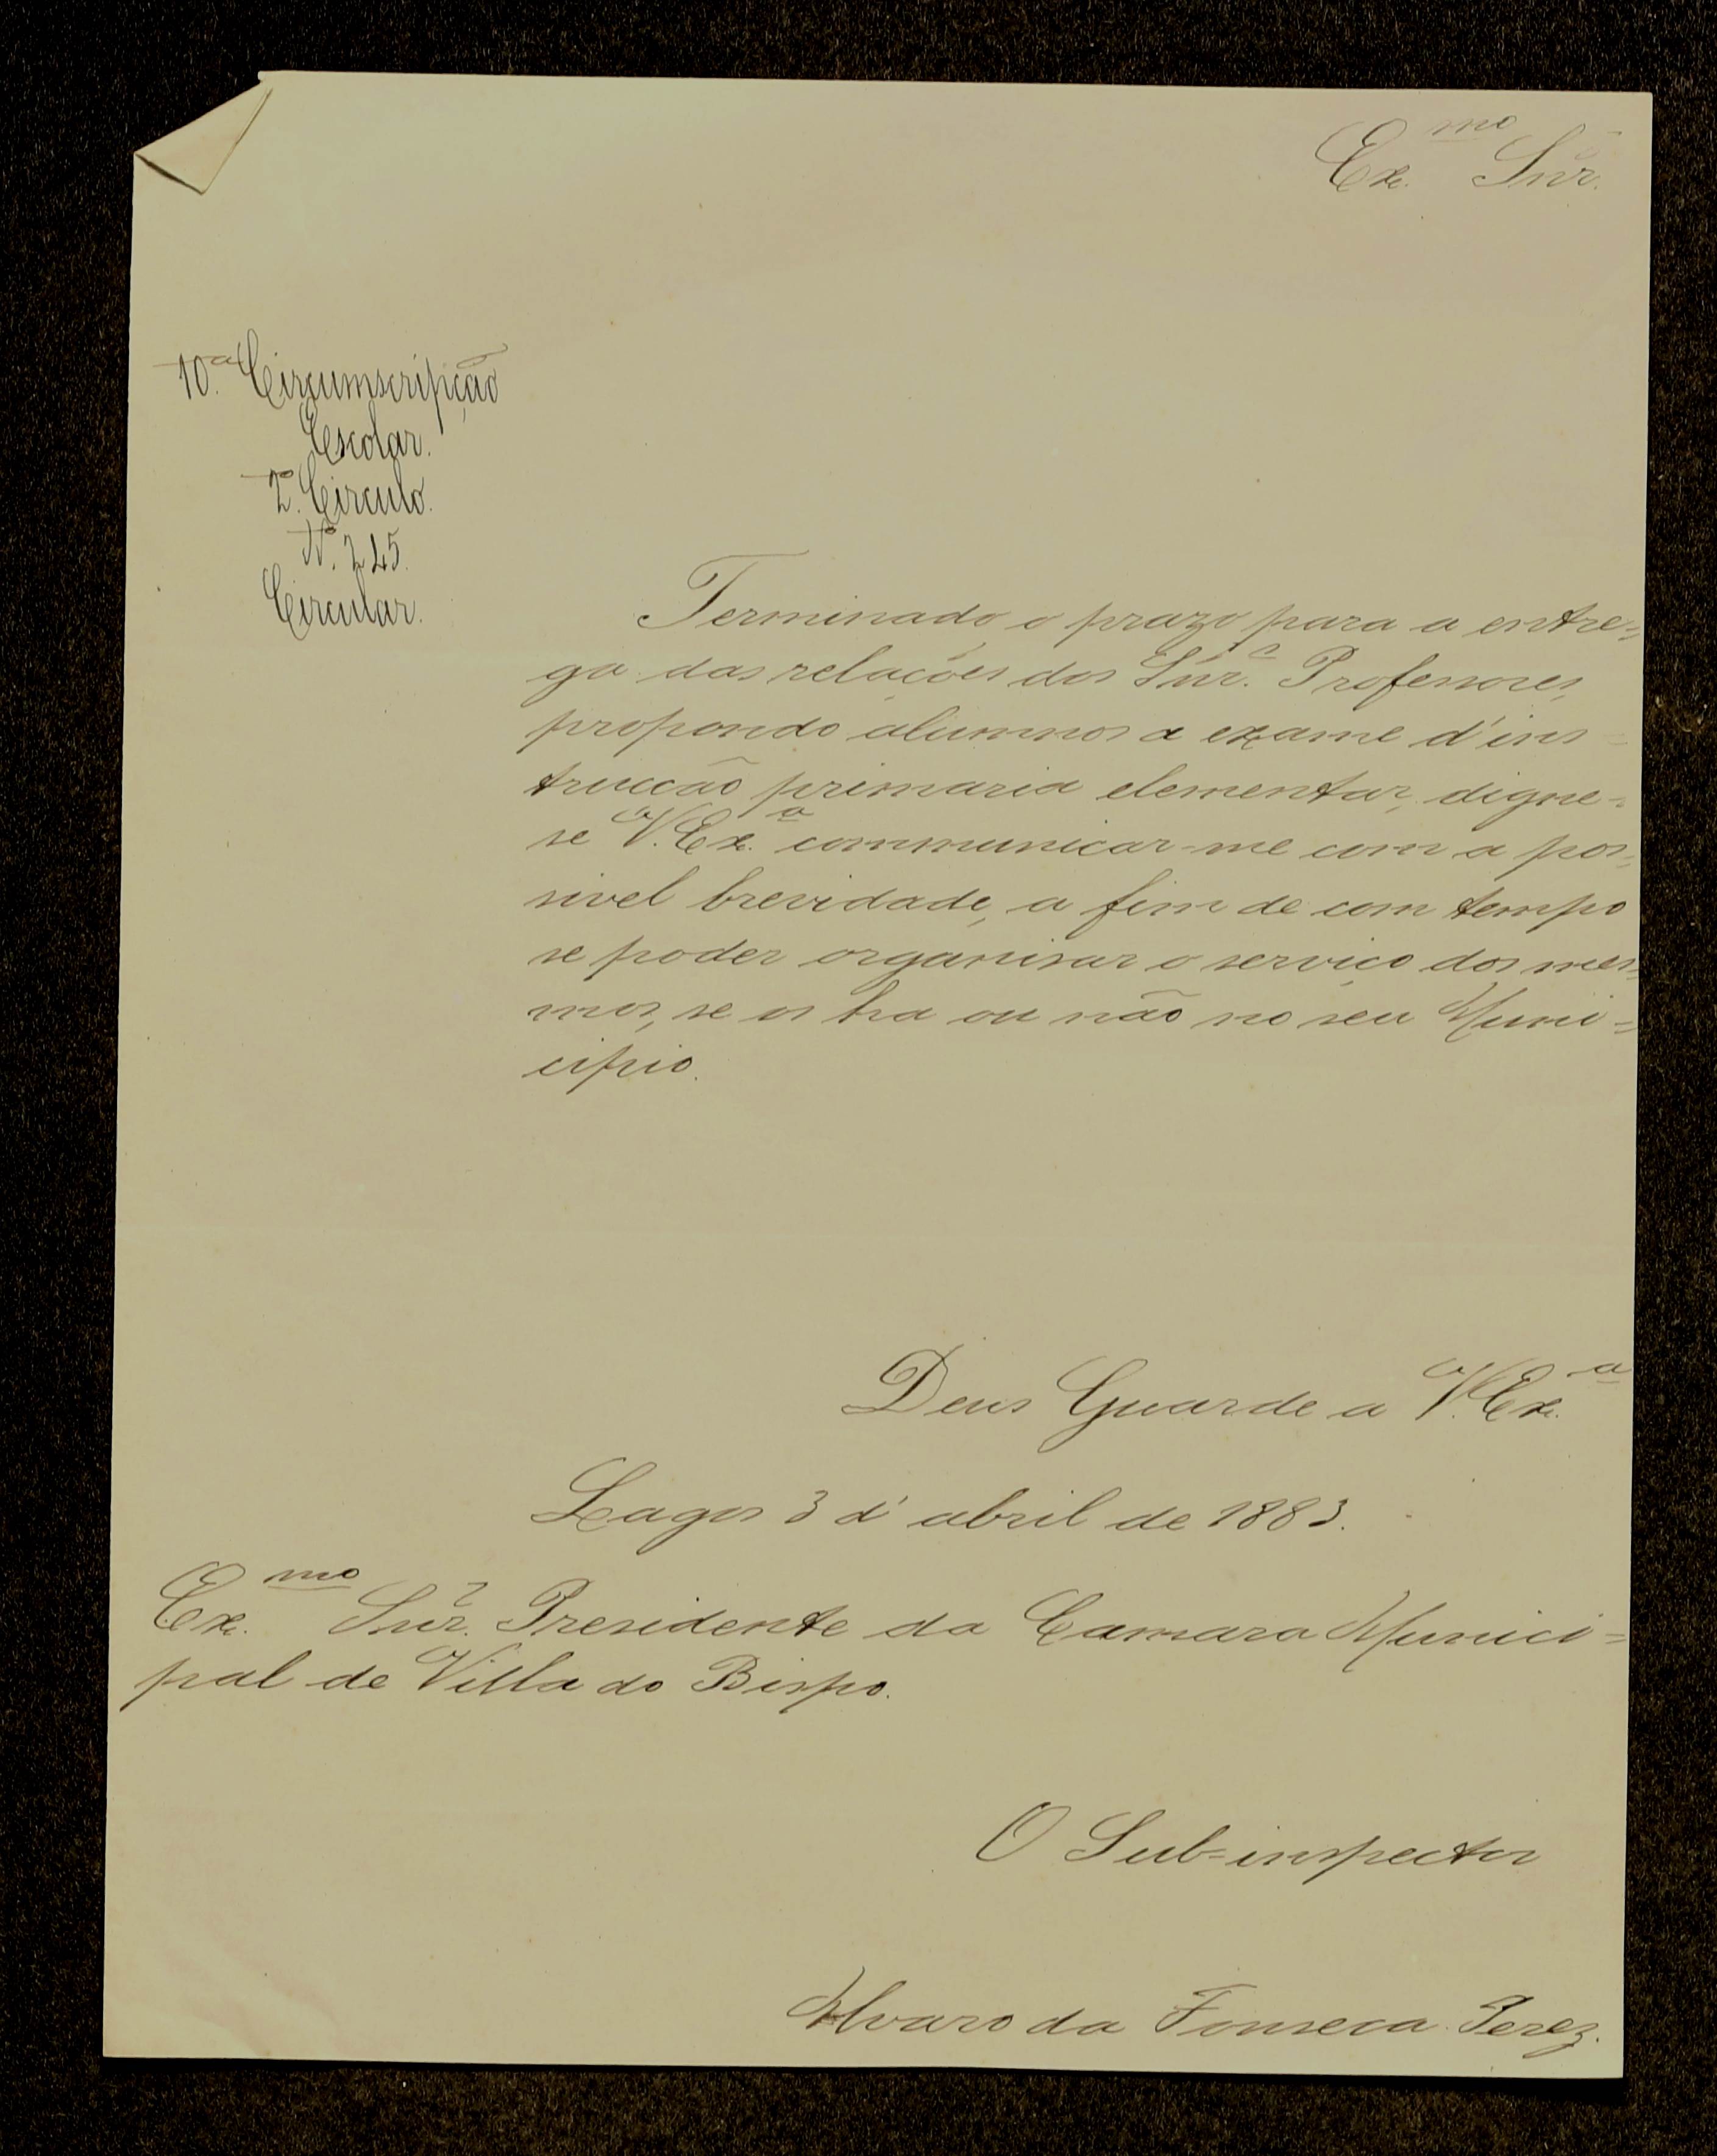 Ex.mo Snr.
10.a Circumscripção
Escolar.
2.º Circulo.
N.º 245.
Circular.
Terminado o prazo para a entre=
ga das relações dos Snr.s Professores,
propondo alumnos a exame d'ins=
trucção primaria elementar, digne=
se V. Ex.a communicar-me com a pos=
sivel brevidade, a fim de com tempo
se poder organisar o serviço dos mes=
mos, se os ha ou não no seu Muni=
cipio.
Deus Guarde a V. Ex.a
Lagos 3 d'abril de 1883.
Ex.mo Snr. Presidente da Camara Munici=
pal de Villa do Bispo.
O Sub=inspector
Alvaro da Fonseca Perez.